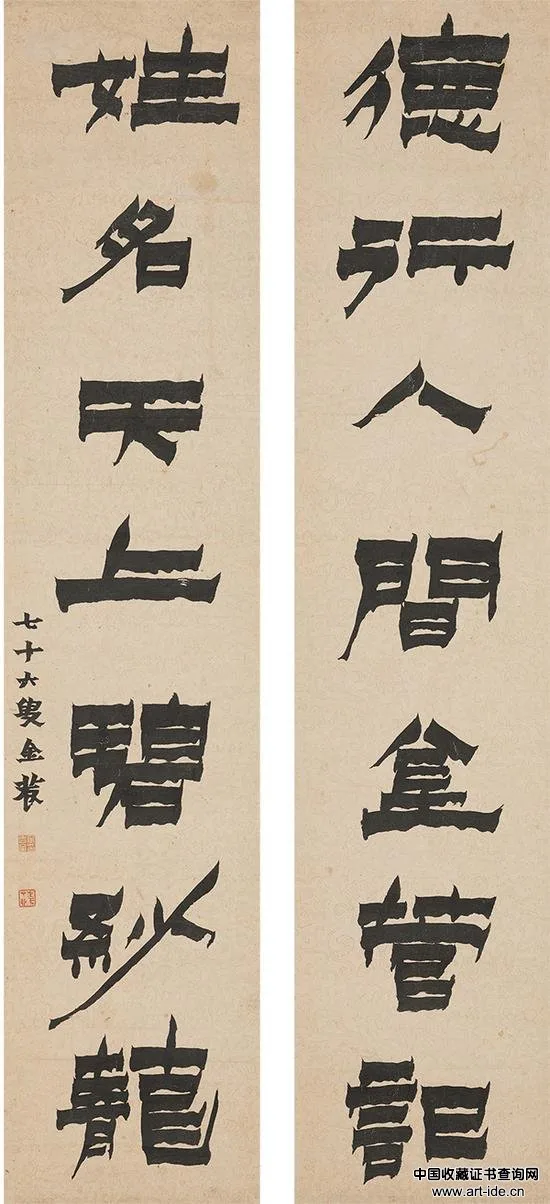 德行人間金管記
姓名天上碧紗龍
七十六叟金農
中国收藏证书查询网
www.art-ide.cn